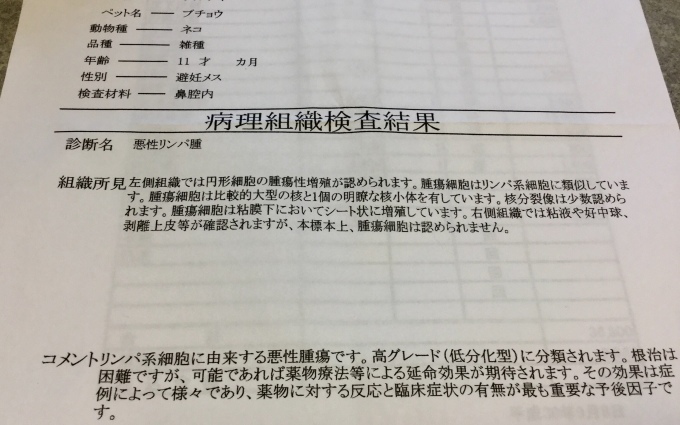 ペット名 ── ブチョウ
動物種 ── ネコ
品種 ── 雑種
年齢 ── 11 才 カ月
性別 ── 避妊メス
検査材料 ── 鼻腔内
病理組織検査結果
診断名 悪性リンパ腫
組織所見 左側組織では円形細胞の腫瘍性増殖が認められます。腫瘍細胞はリンパ系細胞に類似していま
す。腫瘍細胞は比較的大型の核と1個の明瞭な核小体を有しています。核分裂像は少数認めら
れます。腫瘍細胞は粘膜下においてシート状に増殖しています。右側組織では粘液や好中球、
剥離上皮等が確認されますが、本標本上、腫瘍細胞は認められません。
コメント リンパ系細胞に由来する悪性腫瘍です。高グレード(低分化型)に分類されます。根治は
困難ですが、可能であれば薬物療法等による延命効果が期待されます。その効果は症
例によって様々であり、薬物に対する反応と臨床症状の有無が最も重要な予後因子で
す。